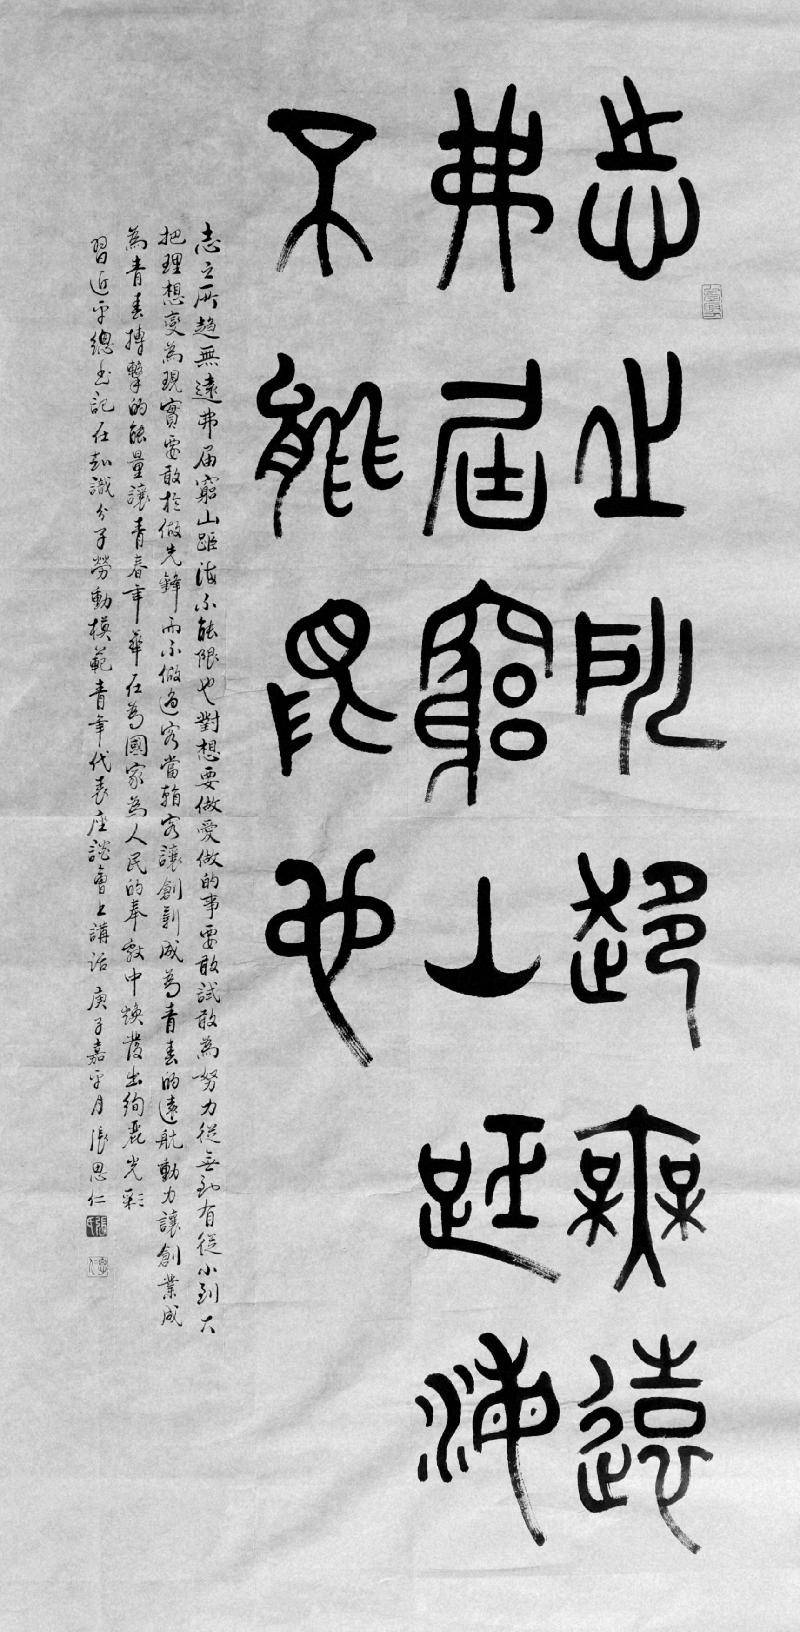 志之所趨無遠
弗届窮山距海
不能限也
志之所趨無遠弗届窮山距海不能限也對想要做愛做的事要敢試敢為努力從無到有從小到大
把理想變為現實要敢於做先鋒而不做過客當看客讓創新成為青春的遠航動力讓創業成
為青春搏擊的能量讓青春年華在為國家為人民的奉獻中煥發出絢麗光彩
習近平總書記在知識分子勞動模範青年代表座談會上講話 庚子嘉平月張思仁